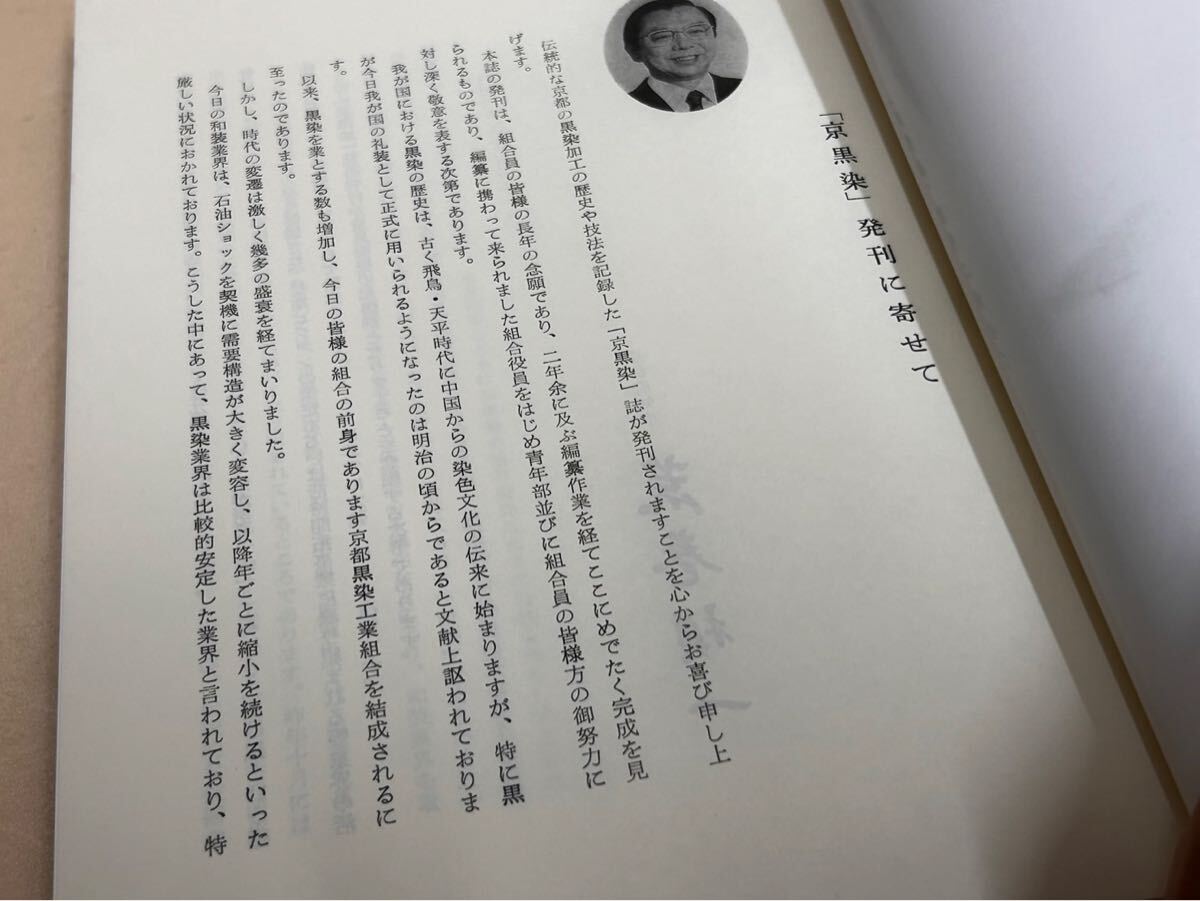 「京黒染」発刊に寄せて
伝統的な京都の黒染加工の歴史や技法を記録した「京黒染」誌が発刊されますことを心からお喜び申し上
げます。
本誌の発刊は、組合員の皆様の長年の念願であり、二年余に及ぶ編纂作業を経てここにめでたく完成を見
られるものであり、編纂に携わって来られました組合役員をはじめ青年部並びに組合員の皆様方の御努力に
対し深く敬意を表する次第であります。
我が国における黒染の歴史は、古く飛鳥・天平時代に中国からの染色文化の伝来に始まりますが、特に黒
が今日我が国の礼装として正式に用いられるようになったのは明治の頃からであると文献上謳われておりま
す。
以来、黒染を業とする数も増加し、今日の皆様の組合の前身であります京都黒染工業組合を結成されるに
至ったのであります。
しかし、時代の変遷は激しく幾多の盛衰を経てまいりました。
今日の和装業界は、石油ショックを契機に需要構造が大きく変容し、以降年ごとに縮小を続けるといった
厳しい状況におかれております。こうした中にあって、黒染業界は比較的安定した業界と言われており、特